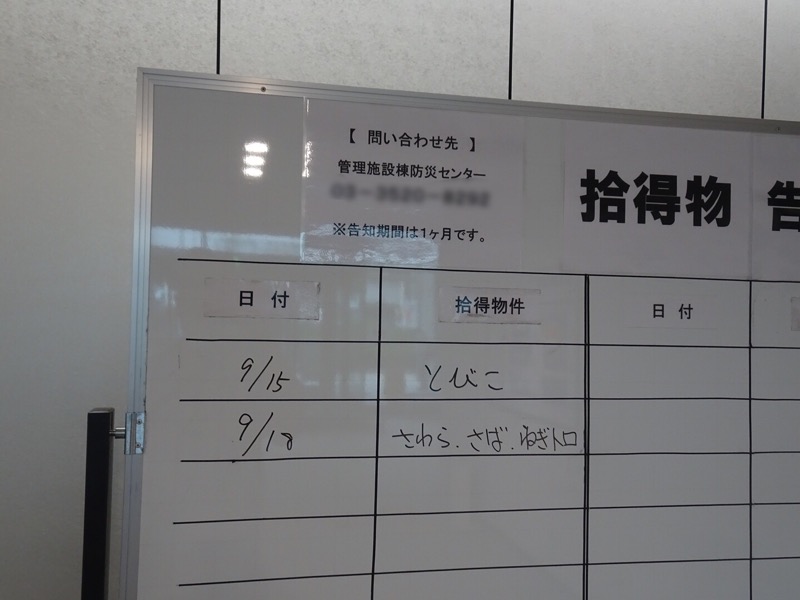 【 問い合わせ先 】
管理施設棟防災センター
※告知期間は1ヶ月です。
拾得物 告
日付 拾得物件 日付
9/15 とびこ
9/18 さわら.さば.ねぎトロ